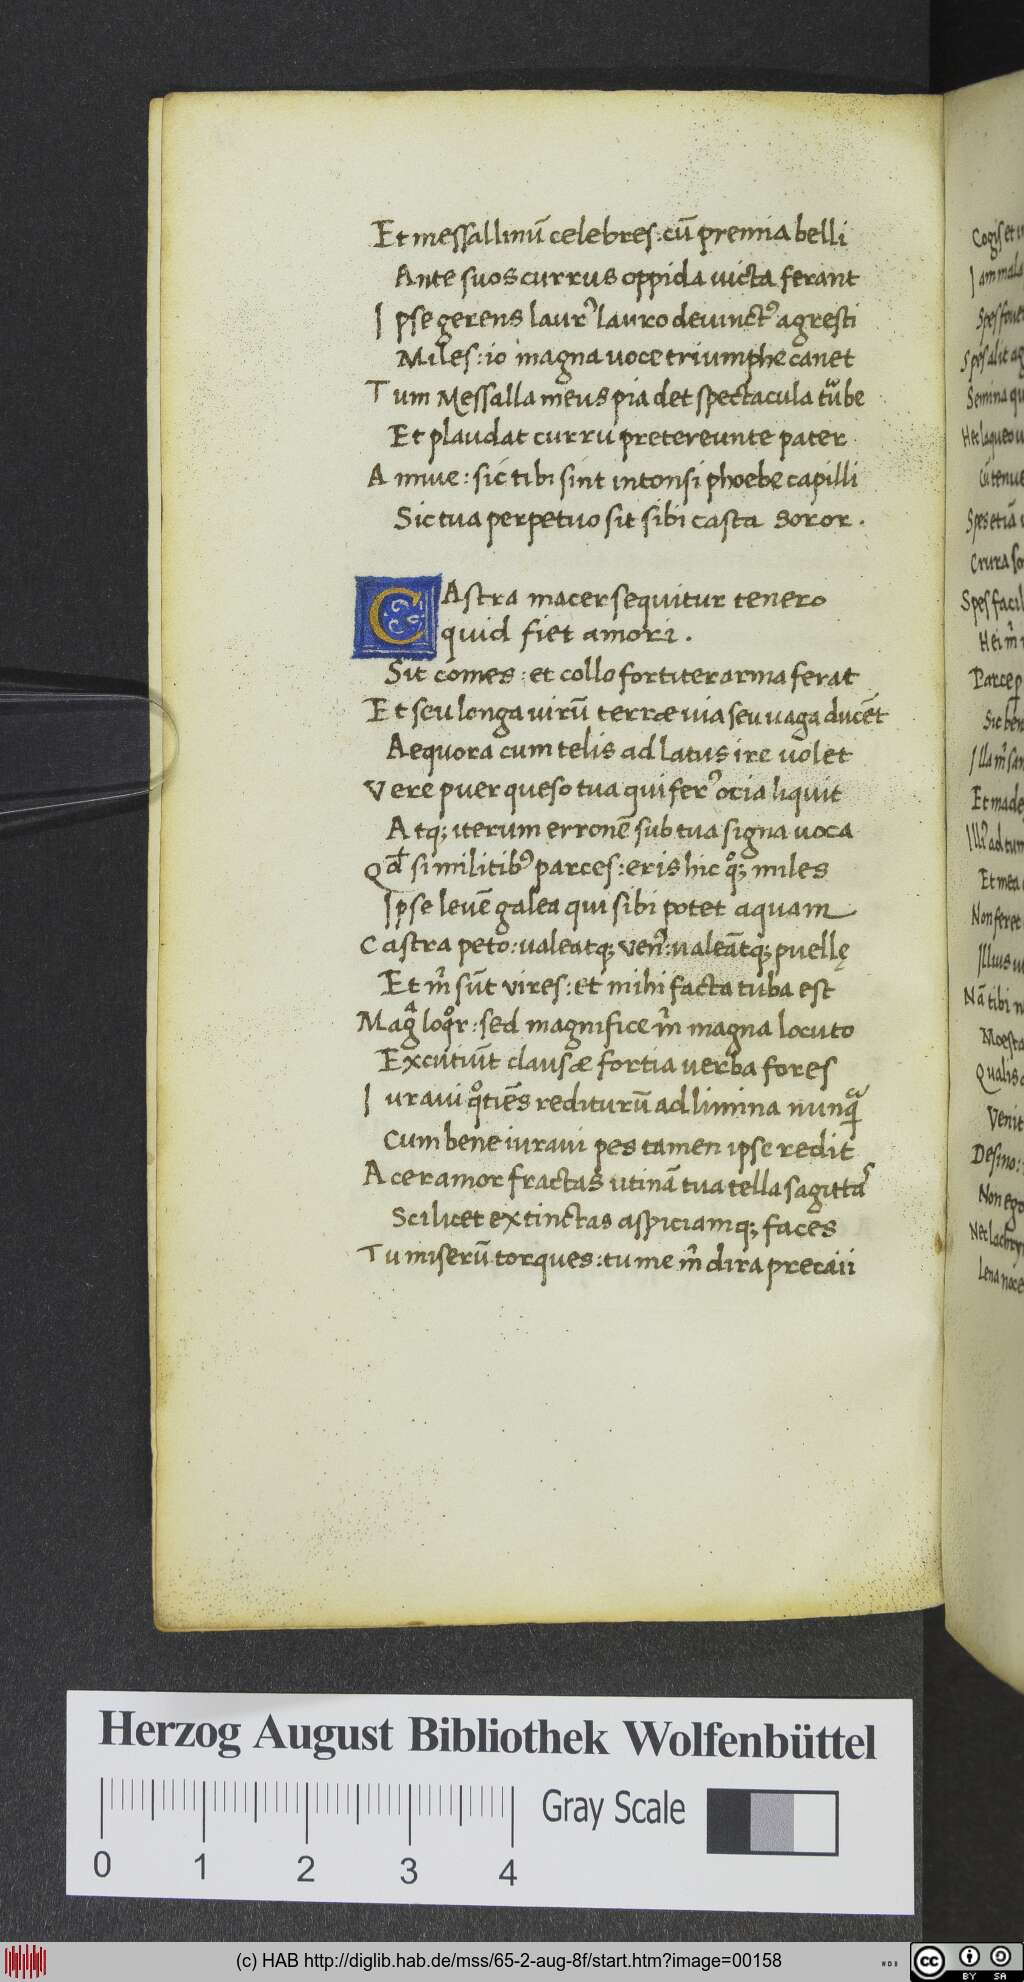 Et messallinū celebres: cū premia belli
Ante suos currus oppida uicta ferant
Ipse gerens laurꝰ lauro deuinctꝰ agresti
Miles: io magna uoce triumphe canet
Tum Messalla meus pia det spectacula tube
Et plaudat curru pretereunte pater
Annue: sic tibi sint intonsi phoebe capilli
Sic tua perpetuo sit sibi casta soror.
CAstra macer sequitur tenero
quid fiet amori.
Sit comes: et collo fortiter arma ferat
Et seu longa uirū terræ uia seu uaga ducēt
Aequora cum telis ad latus ire uolet
Vere puer queso tua qui ferꝰ ocia liquit
Atq; iterum erronē sub tua signa uoca
Qđ si militibꝰ parces: eris hic qͦ; miles
Ipse leuē galea qui sibi potet aquam
Castra peto: ualeatq; venꝰ: ualeātq; puellę
Et m̄ sūt vires: et mihi facta tuba est
Magᷓ loqͦr: sed magnifice m̄ magna locuto
Excutiūt clausæ fortia uerba fores
Iuraui qͦtiēs rediturū ad limina nunqᷓ
Cum bene iuraui pes tamen ipse redit
Acer amor fractas utinā tua tella sagittaˢ
Scilicet extinctas aspiciamq; faces
Tu miserū torques: tu me m̄ dira precaii
Cogis et
Iam mala
Spes foue
Spes alit ag
Semina qu
Hec laqueo u
Cū tenue
Spes etiā
Crura so
Spes facil
Hei m̄
Parce p
Sic ben
Illa m̄ san
Et made
Illiꝰ ad tum
Et mea
Non feret
Illius u
Nā tibi n
Moesta
Qualis
Venit
Desino:
Non ego
Nec lachry
Lena noce
Herzog August Bibliothek Wolfenbüttel
0 1 2 3 4
Gray Scale
(c) HAB http://diglib.hab.de/mss/65-2-aug-8f/start.htm?image=00158
cc BY SA